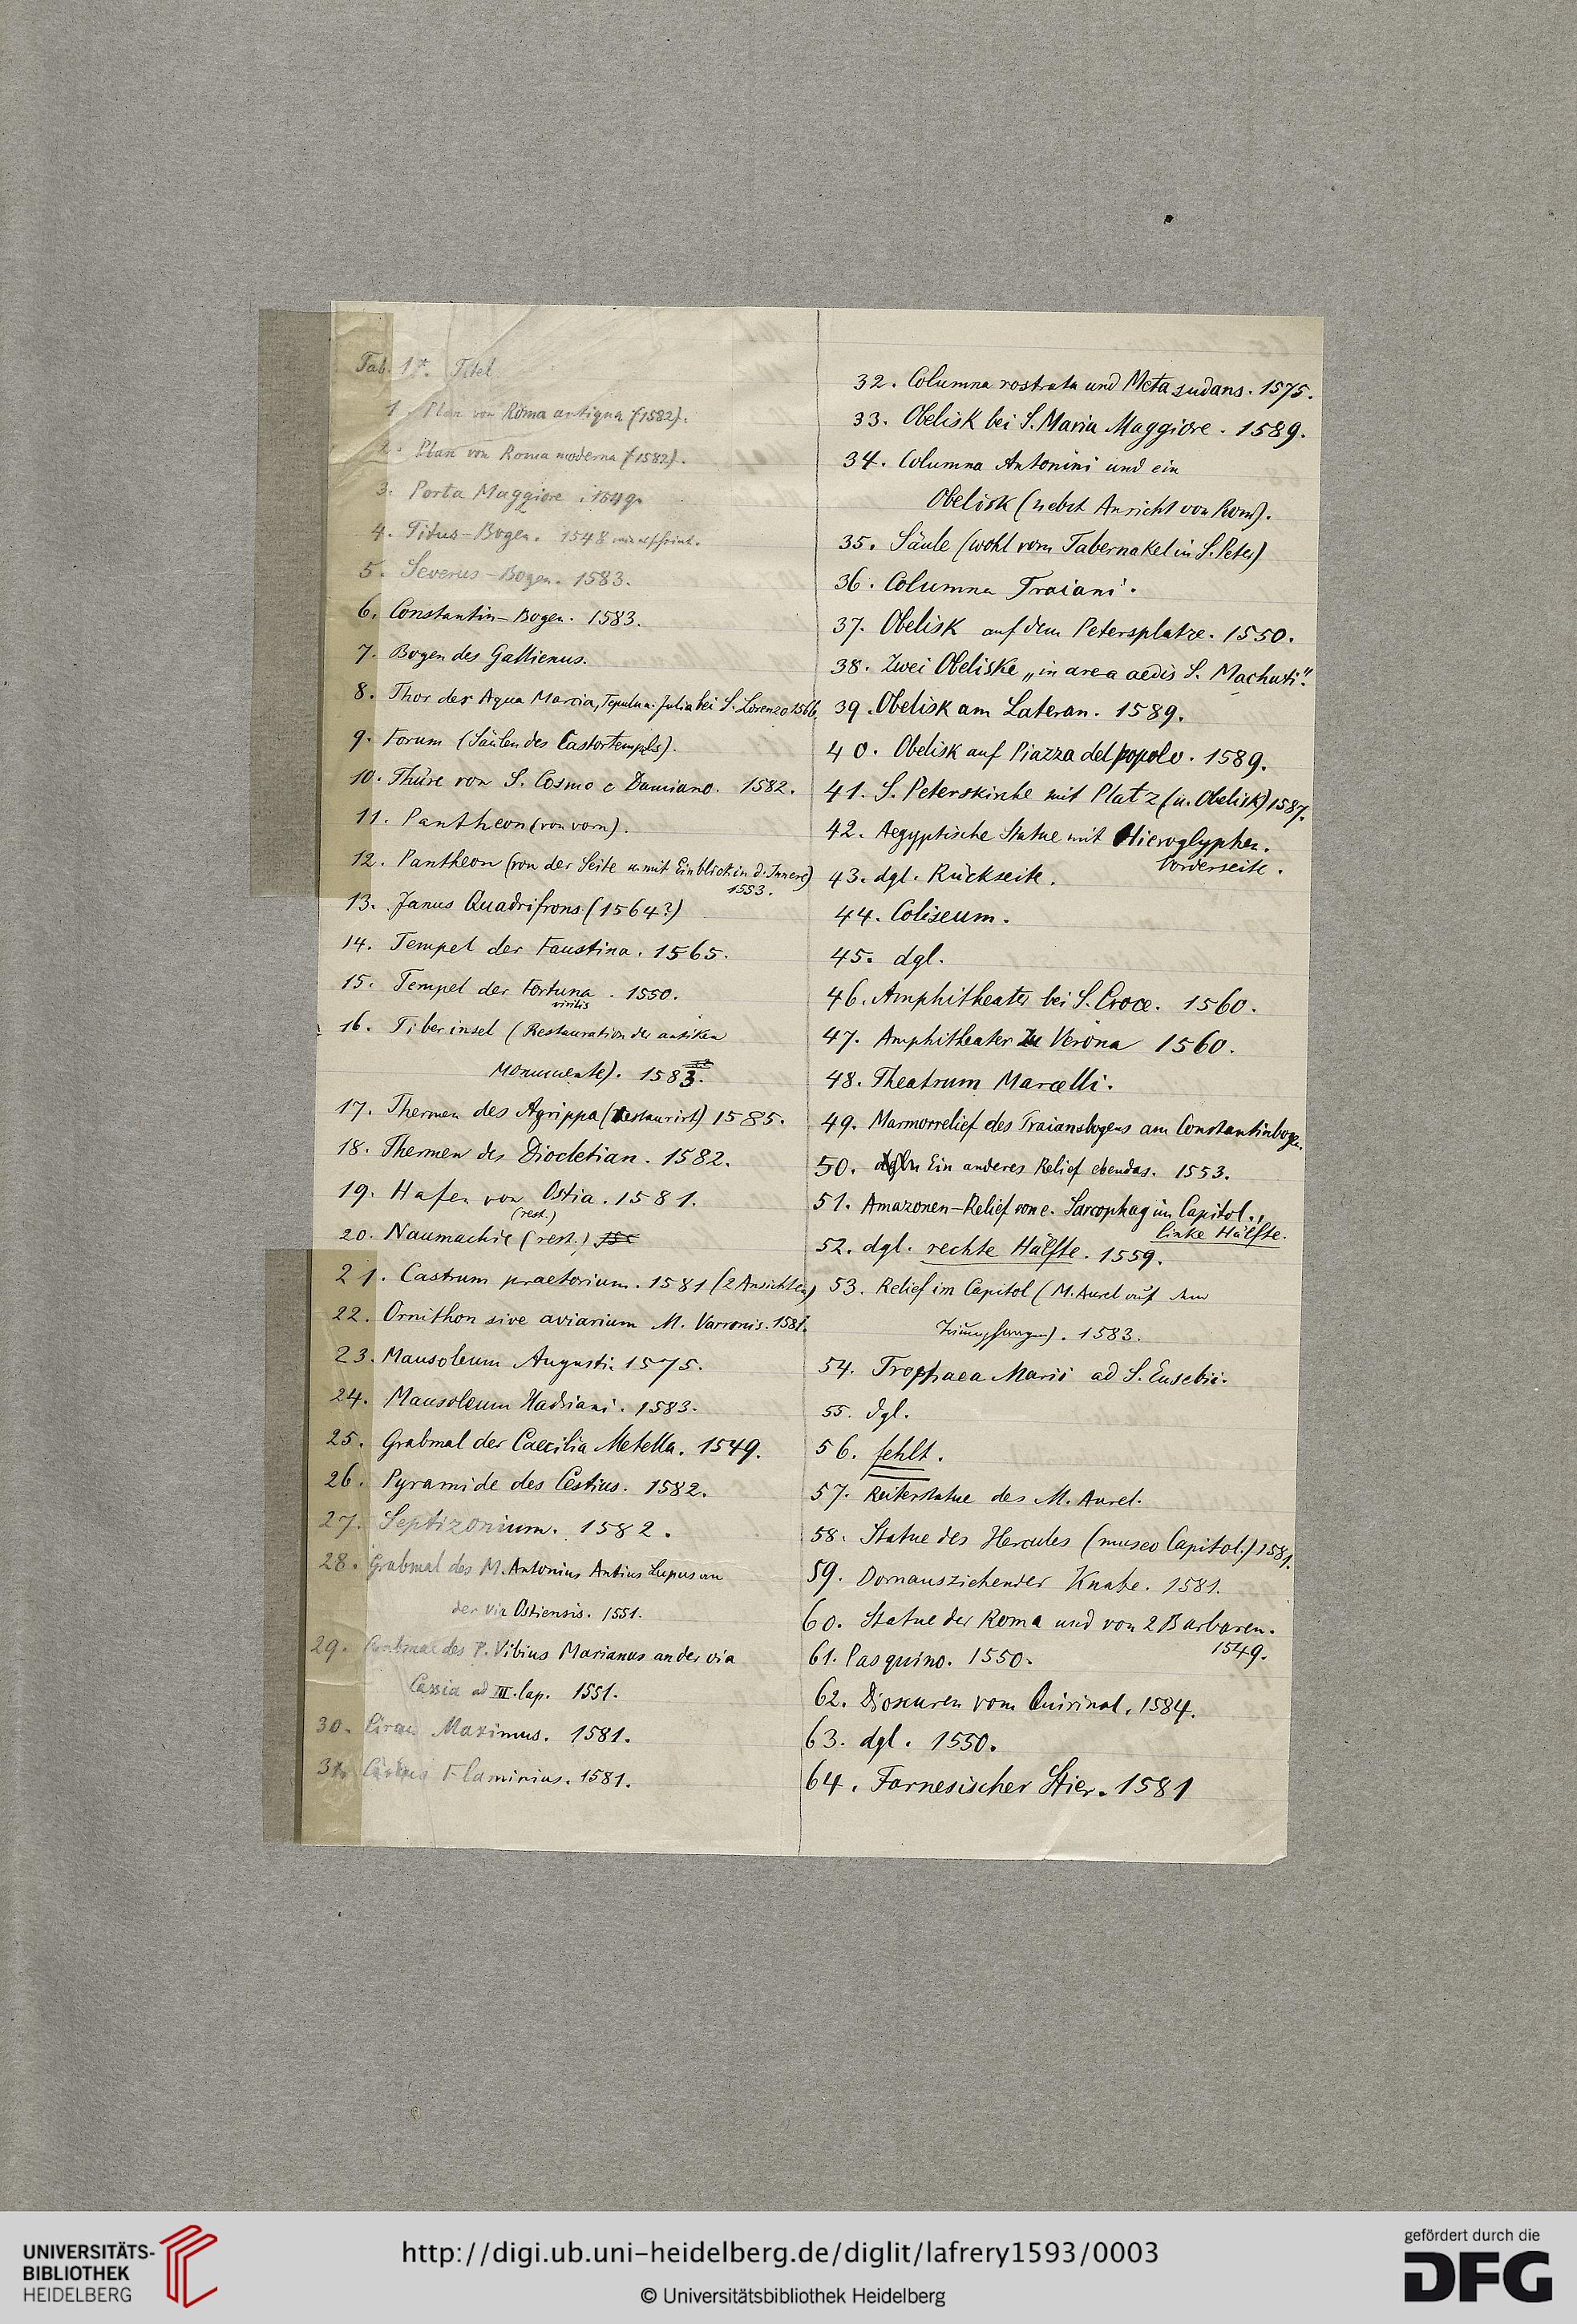 Tab. 1*. Titel
1. Plan von Roma antiqua (1582).
2. Plan von Roma moderna (1582).
3. Porta Maggiore. 1549.
4. Titus-Bogen. 1548
5. Severus-Bogen. 1583.
6. Constantin-Bogen. 1583.
7. Bogen des Gallienus.
8. Thor der Aqua Marcia, Tepula u. Julia bei S. Lorenzo 1566.
9. Forum (Säulen des Castortempels).
10. Thüre von S. Cosmo e Damiano. 1582.
11. Pantheon (von vorn).
12. Pantheon (von der Seite u. mit Einblick in d. Innere)
1553.
13. Janus Quadrifrons (1564?)
14. Tempel der Faustina. 1565.
15. Tempel der Fortuna . 1550.
virilis
16. Tiberinsel (Restauration der antiken
Monumente). 1583.
17. Thermen des Agrippa (restaurirt) 1585.
18. Thermen des Diocletian. 1582.
19. Hafen von Ostia. 1581.
(rest.)
20. Naumachie (rest.)
21. Castrum praetorium. 1581 (2 Ansichten)
22. Ornithon sive aviarium M. Varronis. 1581.
23. Mausoleum Augusti. 1575.
24. Mausoleum Hadriani. 1583.
25. Grabmal der Caecilia Metella. 1549.
26. Pyramide des Cestius. 1582.
27. Septizonium. 1582.
28. Grabmal des M. Antonius Antius Lupus an
der via Ostiensis. 1551.
29. Grabmal des P. Vibius Marianus an der via
Cassia ad III. lap. 1551.
30. Circus Maximus. 1581.
31. Circus Flaminius. 1581.
32. Columna rostrata und Meta sudans. 1575.
33. Obelisk bei S. Maria Maggiore. 1589.
34. Columna Antonini und ein
Obelisk (nebst Ansicht von Rom).
35. Säule (wohl vom Tabernakel in S. Peter)
36. Columna Traiani.
37. Obelisk auf dem Petersplatze. 1550.
38. Zwei Obeliske „in area aedis S. Machuti".
39. Obelisk am Lateran. 1589.
40. Obelisk auf Piazza del popolo. 1589.
41. S. Peterskirche mit Platz (u. Obelisk) 1587.
42. Aegyptische Statue mit Hieroglyphen.
Vorderseite.
43. dgl. Rückseite.
44. Coliseum.
45. dgl.
46. Amphitheater bei S. Croce. 1560.
47. Amphitheater zu Verona 1560.
48. Theatrum Marcelli.
49. Marmorrelief des Traiansbogens am Constantinbogen.
50. Ein anderes Relief ebendas. 1553.
51. Amazonen-Relief von e. Sarcophag im Capitol.,
linke Hälfte.
52. dgl. rechte Hälfte. 1559.
53. Relief im Capitol (M. Aurel auf dem
Triumphwagen). 1583.
54. Trophaea Marii ad S. Eusebii.
55. dgl.
56. fehlt.
57. Reiterstatue des M. Aurel.
58. Statue des Hercules (museo Capitol.) 1581.
59. Dornausziehender Knabe. 1581.
60. Statue der Roma und von 2 Barbaren.
1549.
61. Pasquino. 1550.
62. Dioscuren vom Quirinal. 1584.
63. dgl. 1550.
64. Farnesischer Stier. 1581
UNIVERSITÄTS-
BIBLIOTHEK
HEIDELBERG
http://digi.ub.uni-heidelberg.de/diglit/lafrery1593/0003
© Universitätsbibliothek Heidelberg
gefördert durch die
DFG